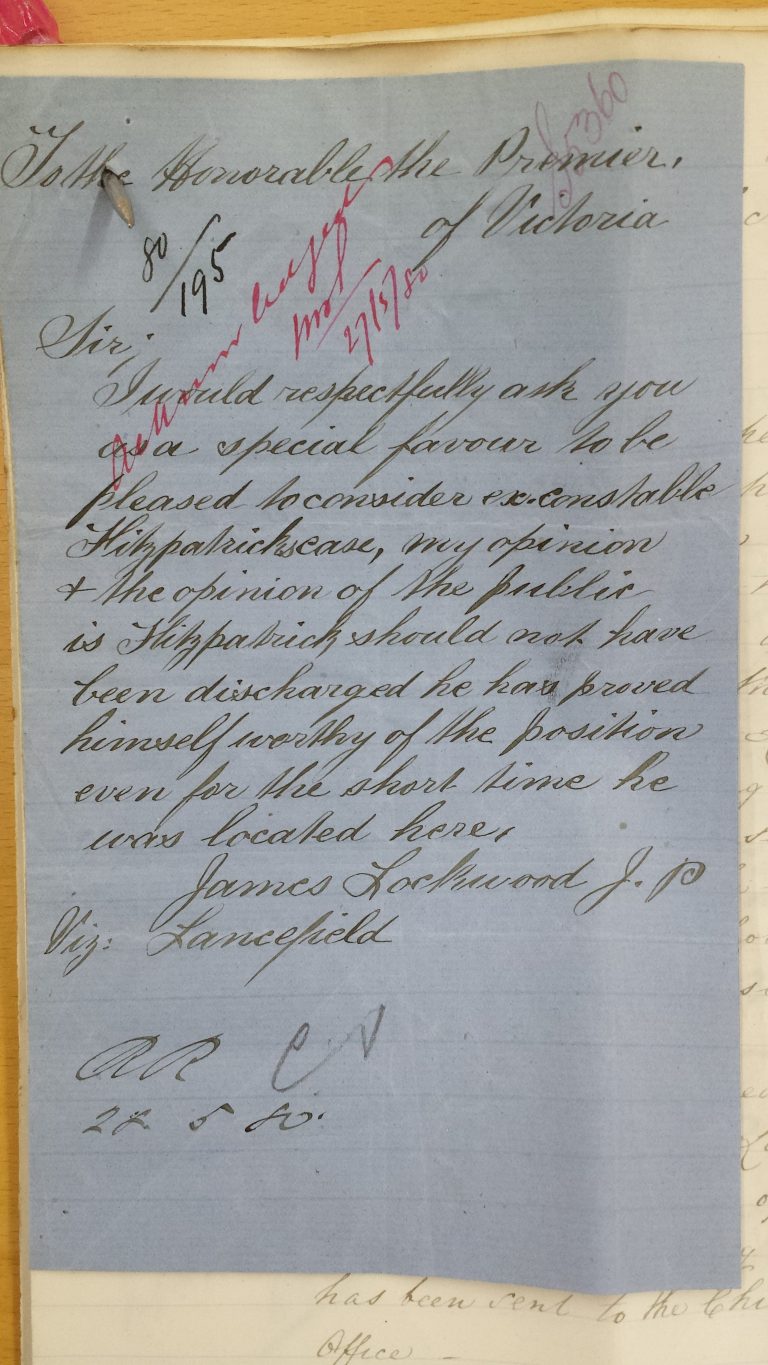 To the Honorable the Premier,
of Victoria
80/195
27/5/80
Sir,
I would respectfully ask you
as a special favour to be
pleased to consider ex-constable
Fitzpatricks case, my opinion
& the opinion of the public
is Fitzpatrick should not have
been discharged he has proved
himself worthy of the position
even for the short time he
was located here,
James Lockwood J.P
Viz: Lancefield
28 5 80.
has been sent to the Chi
Office —